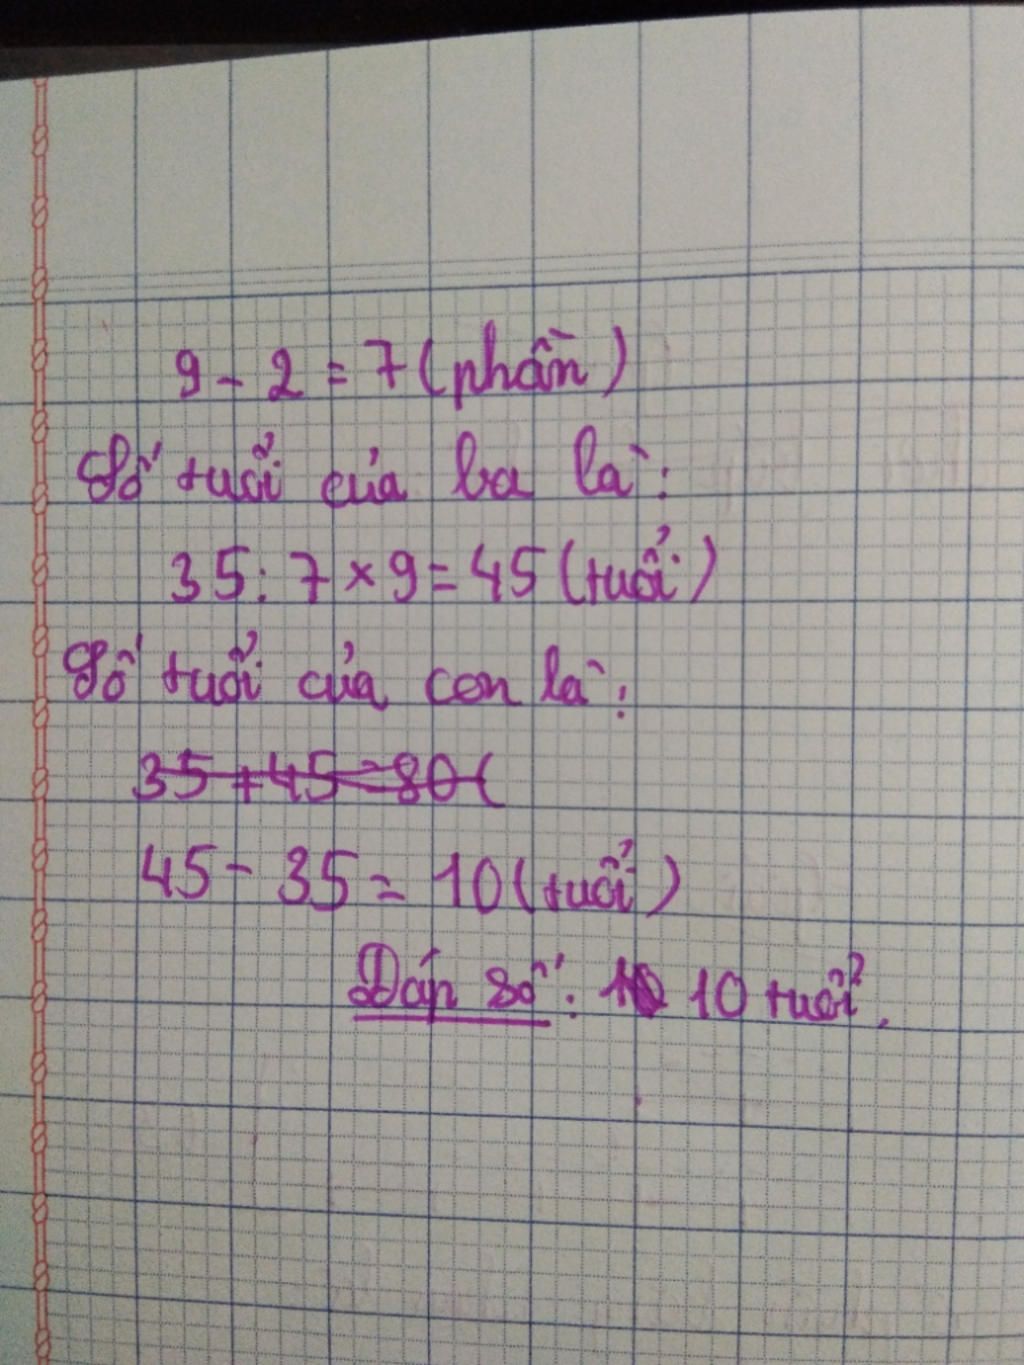 9 - 2 = 7 (phần)
Số tuổi của ba là:
35 : 7 × 9 = 45 (tuổi)
Số tuổi của con là:
35 + 45 = 80 (
45 - 35 = 10 (tuổi)
Đáp số: 10 tuổi.